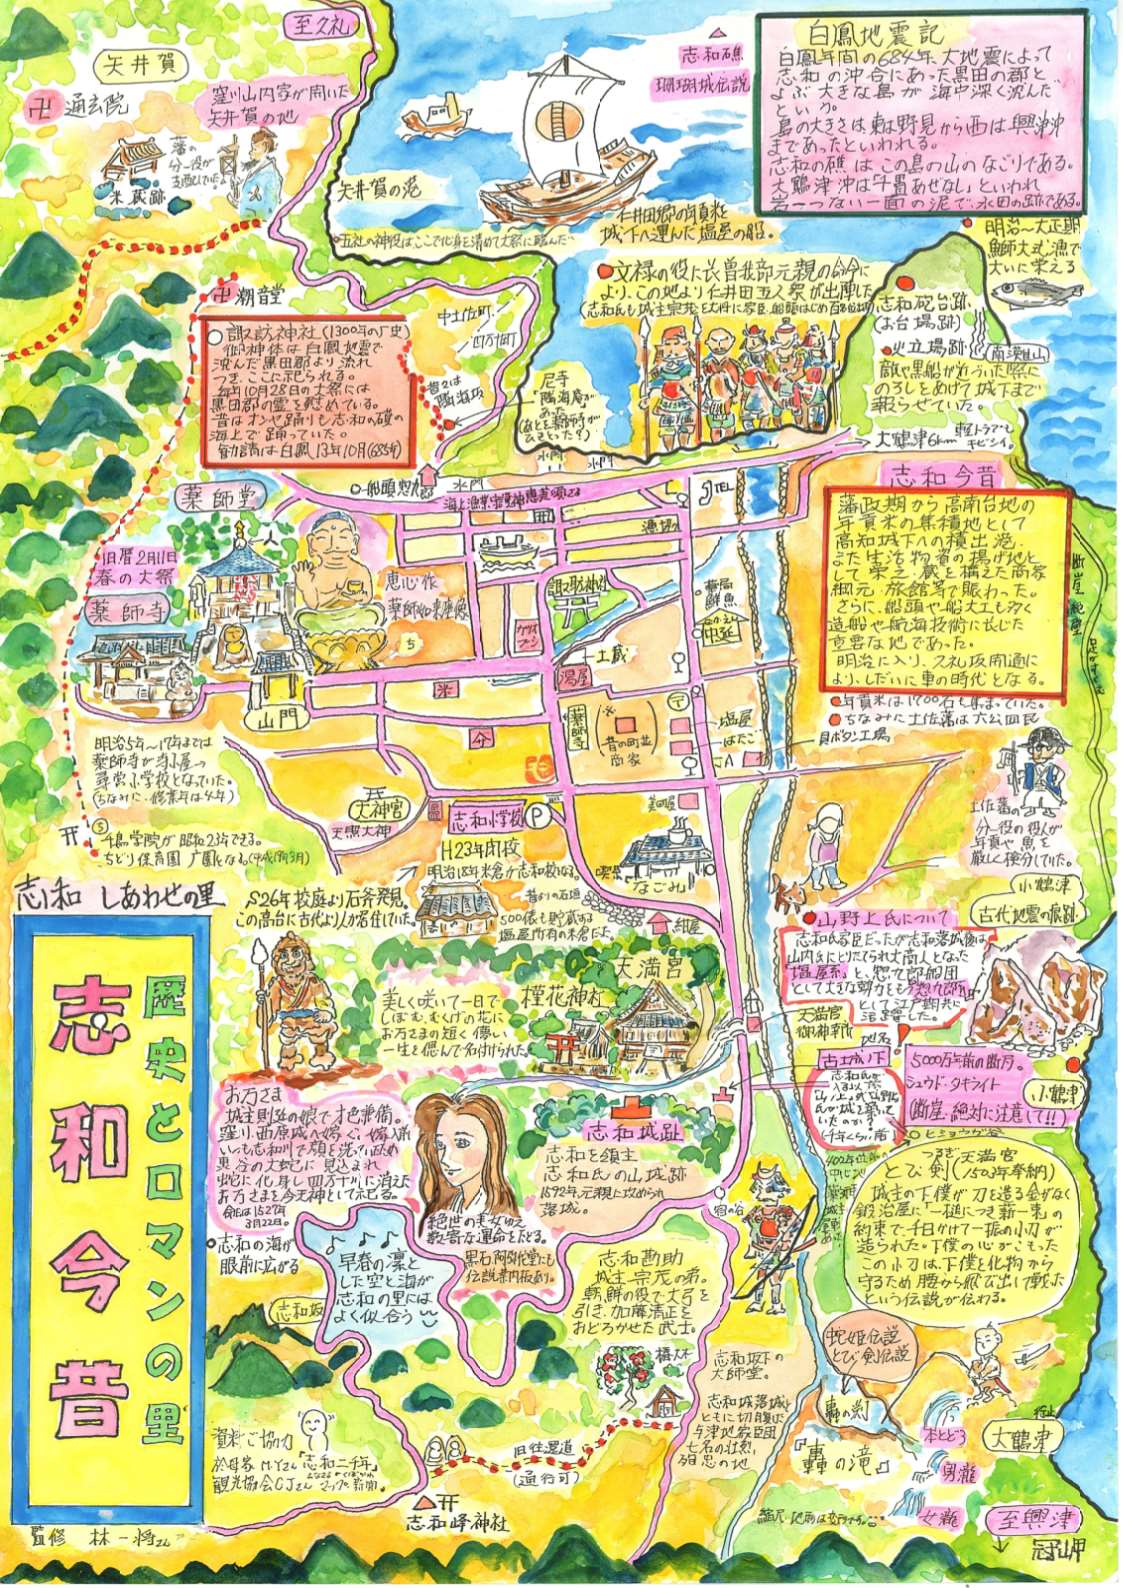 至久礼
矢井賀
卍 通去院
窪川山内家が開いた
矢井賀の地
藩の
分一役が
支配していた
米蔵跡
矢井賀の泥
志和礁
珊瑚城伝説
白鳳地震記
白鳳年間の684年、大地震によって
志和の沖合にあった黒田の郡と
よぶ大きな島が海中深く沈んだ
という。
島の大きさは、東は野見から西は興津沖
まであったといわれる。
志和の礁は、この島の山のなごりである。
大鶴津沖は「千畳あぜなし」といわれ
岩一つない一面の泥で水田の跡である。
仁井田郷の年貢米を
城下へ運んだ塩屋の船。
五社の神役はここで心身を清めて大祭に臨んだ
文禄の役に長曽我部元親の命令に
より、この地より仁井田五人祭が出陣した
明治〜大正期
鰤大式漁で
大いに栄える
志和砲台跡
(お台場跡)
火立場跡
敵や黒船が近づいた際に
のろしをあげて城下まで
報らせていた。
卍潮音堂
諏訪神社(1300年の歴史)
御神体は白鳳地震で
沈んだ黒田郡より流れ
つき、ここに祀られる。
毎年10月28日の大祭には
黒田郡の霊を慰めている。
昔はオンヤ踊りも志和の礁の
海上で踊っていた。
勧請は白鳳13年10月(685年)
中土佐町
四万十町
昔々は
隣海坂
尼寺
隣海庵が
あった
(あとを薬師寺が
ひきとった?)
水門
水門
水門
大鶴津6km
軽トラでも
キビシイ。
船頭惣九
薬師堂
旧暦2月11日
春の大祭
薬師寺
恵心作
薬師如来座像
ち
山門
TEL
漁協
薬局
鮮魚
中延
諏訪神社
カツオブシ
土蔵
湯屋
米
分
薬師寺
昔の町並
商家
塩屋
はたご
JA
貝ボタン工場
志和今昔
藩政期から高南台地の
年貢米の集積地として
高知城下への積出港、
また生活物資の揚げ地と
して栄え、蔵を構えた商家
網元・旅館等で賑わった。
さらに、船頭や船大工も多く
造船や航海技術に長じた
重要な地であった。
明治に入り、久礼坂開通に
より、しだいに車の時代となる。
年貢米は1700石も集まっていた。
ちなみに土佐藩は六公四民
断崖絶壁
明治5年〜17年までは
薬師寺が寺小屋→
尋常小学校となっていた。
(ちなみに修業年は4年)
千鳥学院が昭和23年できる。
ちどり保育園 广園となる。(平成17年3月)
大神宮
天照大神
志和小学校
P
H23年閉校
明治18年米倉が志和校になる。
喫茶
なごみ
美田屋
紺屋
昔よりの石垣
500俵も貯蔵する
塩屋所有の米倉だよ。
土佐藩の
分一役の役人が
年貢や魚を
厳しく検分していた。
小鶴津
古代地震の痕跡
志和 しあわせの里
S26年校庭より石斧発見。
この高台に古代より人が居住していた。
歴史とロマンの里
志和今昔
天満宮
槿花神社
美しく咲いて一日で
しぼむ、むくげの花に
お万さまの短く儚い
一生を偲んで名付けられた。
天満宮
御神幸所
山野上氏について
志和氏家臣だったが志和落城後は
山内氏にとりたてられ大商人となった
塩屋系と、惣九郎船団
として大きな勢力をもつ系がいて
として江戸期共に
活躍した。
地名
古土城ノ下
志和氏が
5000万年前の断層。
シュウド・タキライト
(断崖・絶対に注意して!!)
小鶴津
お万さま
城主則延の娘で才色兼備。
窪川・西原城へ嫁ぐ。嫁入前
いつも志和川で顔を洗ってたため
奥谷の大蛇に見込まれ
蛇に化身し四万十川に消えた
お万さまを今天神として祀る。
命日は1527年
3月22日。
絶世の美女ゆえ
数奇な運命をたどる。
黒石阿弥陀堂にも
伝説案内板あり。
志和城趾
志和を鎮主
志和氏の山城跡
1592年元親に攻められ
落城。
宿の谷
天満宮
とび剣(1503年奉納)
つるぎ
城主の下僕が刀を造る金がなく
鍛冶屋に「一槌につき薪一束」の
約束で、千日かけて一振の小刀が
造られた。下僕の心がこもった
この小刀は、下僕を化物から
守るため腰から飛び出して戦った
という伝説が伝わる。
志和の海が
眼前に広がる
志和坂
早春の凛と
した空と海が
志和の里には
よく似合う
志和勘助
城主・宗茂の弟。
朝鮮の役で大弓を
引き、加藤清正を
おどろかせた武士。
椿大木
志和坂下の
大師堂。
志和城落城と
ともに切腹した
与津地家臣団
七名の壮烈
殉忠の地
蛇姫伝説
とび剣伝説
轟の渕
『轟の滝』
本とどろ
男瀧
女瀧
大鶴津
至興津
冠岬
旧往還道
(通行可)
志和峰神社
資料ご協力
「志和二千年」
監修 林 一将さん